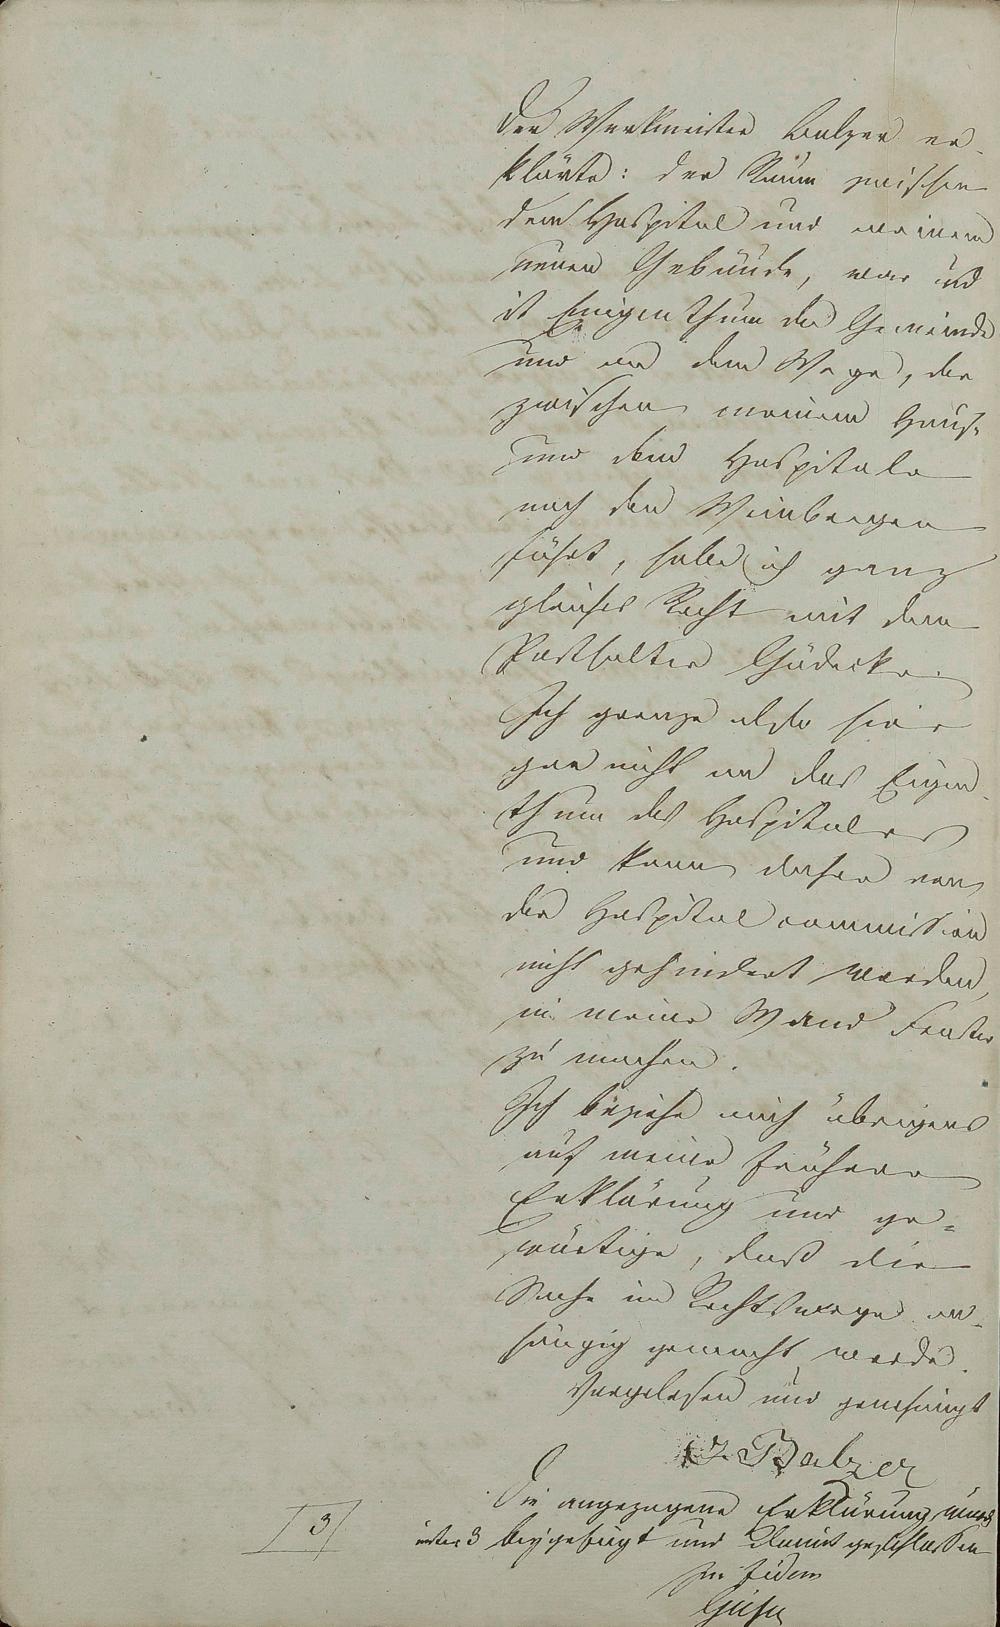 Der Werkmeister Balzer er-
klärte: der Raum zwischen
dem Hospital und meinem
neuen Gebäude, war und
ist Eigenthum der Gemeinde
und an dem Wege, der
zwischen meinem Haus-
und dem Hospitale
nach den Weinbergen
führt, habe ich ganz
gleiches Recht mit dem
Posthalter Gödecke.
Ich grenze also hier
gar nicht an das Eigen-
thum des Hospitales
und kann daher von
der Hospitalcommission
nicht gehindert werden,
in meine Wand Fenster
zu machen.
Ich beziehe mich übrigens
auf meine frühere
Erklärung und ge-
wärtige, daß die
Sache im Rechtswege an-
hängig gemacht werde.
Vorgelesen und genehmigt
Balzer
Die angezogene Erklärung wurde
unter 3 beygefügt und damit geschlossen
in fidem
3